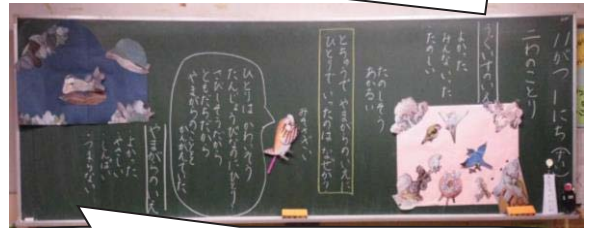 11がつ 1にち(木)
二わのことり
うぐいすのいえ
よかった
みんないた
たのしい
たのしそう
あかるい
とちゅうで やまがらのいえに
ひとりで いったのは なぜだろう
みそさざい
ひとりは かわいそう
たんじょうびなのに ひとり
さびしそうだから
ともだちだから
やまがらのことを
かんがえていた
やまがらのいえ
よかった
やさしい
しんぱい
つまらない